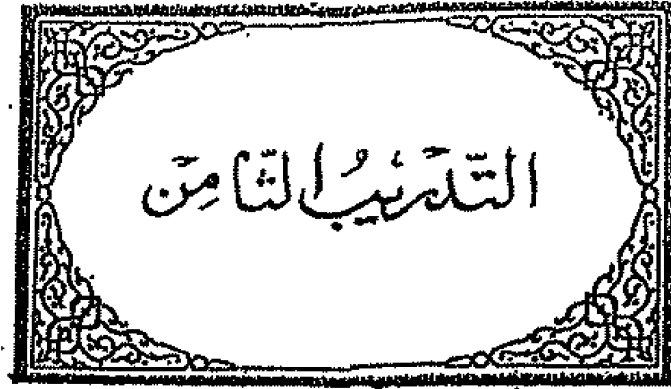 التَّدْرِيْبُ الثَّامِنُ